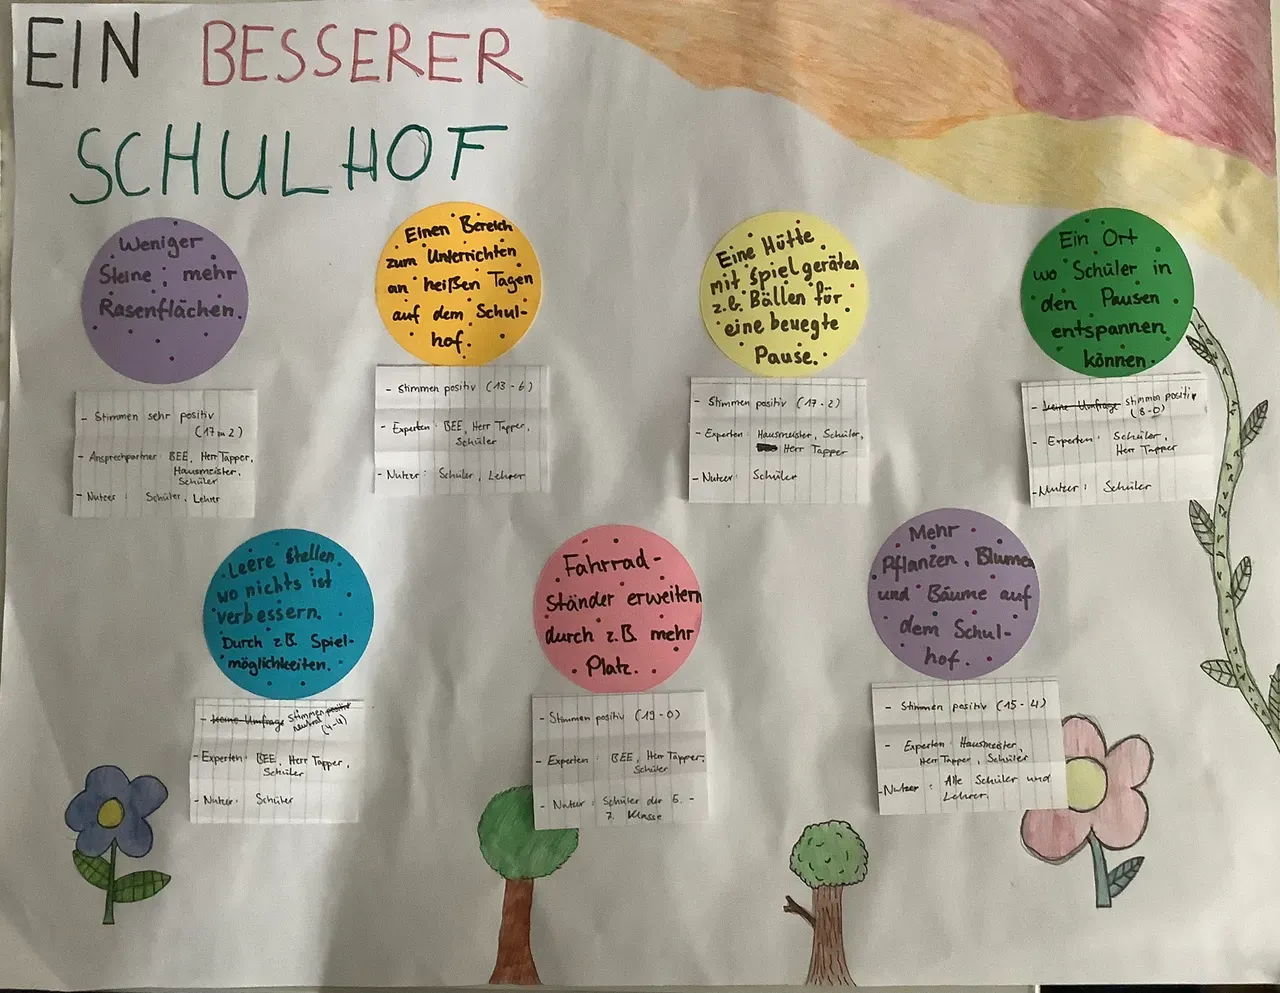 EIN BESSERER
SCHULHOF
Weniger
Steine ; mehr
Rasenflächen.
- Stimmen sehr positiv
(17 - 2)
- Ansprechpartner: BEE, Herr Tapper,
Hausmeister,
Schüler
- Nutzer : Schüler, Lehrer
Einen Bereich
zum Unterrichten
an heißen Tagen
auf dem Schul-
hof.
- Stimmen positiv (13 - 6)
- Experten: BEE, Herr Tapper,
Schüler
- Nutzer: Schüler, Lehrer
Eine Hütte
mit Spielgeräten
z.B. Bällen für
eine bewegte
Pause.
- Stimmen positiv (17 - 2)
- Experten: Hausmeister, Schüler,
Herr Tapper
- Nutzer: Schüler
Ein Ort
wo Schüler in
den Pausen
entspannen
können.
- keine Umfrage Stimmen positiv
(8-0)
- Experten: Schüler,
Herr Tapper
- Nutzer: Schüler
Leere Stellen
wo nichts ist
verbessern.
Durch z.B. Spiel-
möglichkeiten.
- keine Umfrage Stimmen positiv
neutral
(4-4)
- Experten: BEE, Herr Tapper,
Schüler
- Nutzer: Schüler
Fahrrad-
Ständer erweitern
durch z.B. mehr
Platz.
- Stimmen positiv (19 - 0)
- Experten: BEE, Herr Tapper,
Schüler
- Nutzer: Schüler der 5. -
7. Klasse
Mehr
Pflanzen, Blumen
und Bäume auf
dem Schul-
hof.
- Stimmen positiv (15 - 4)
- Experten Hausmeister,
Herr Tapper, Schüler
- Nutzer: Alle Schüler und
Lehrer.